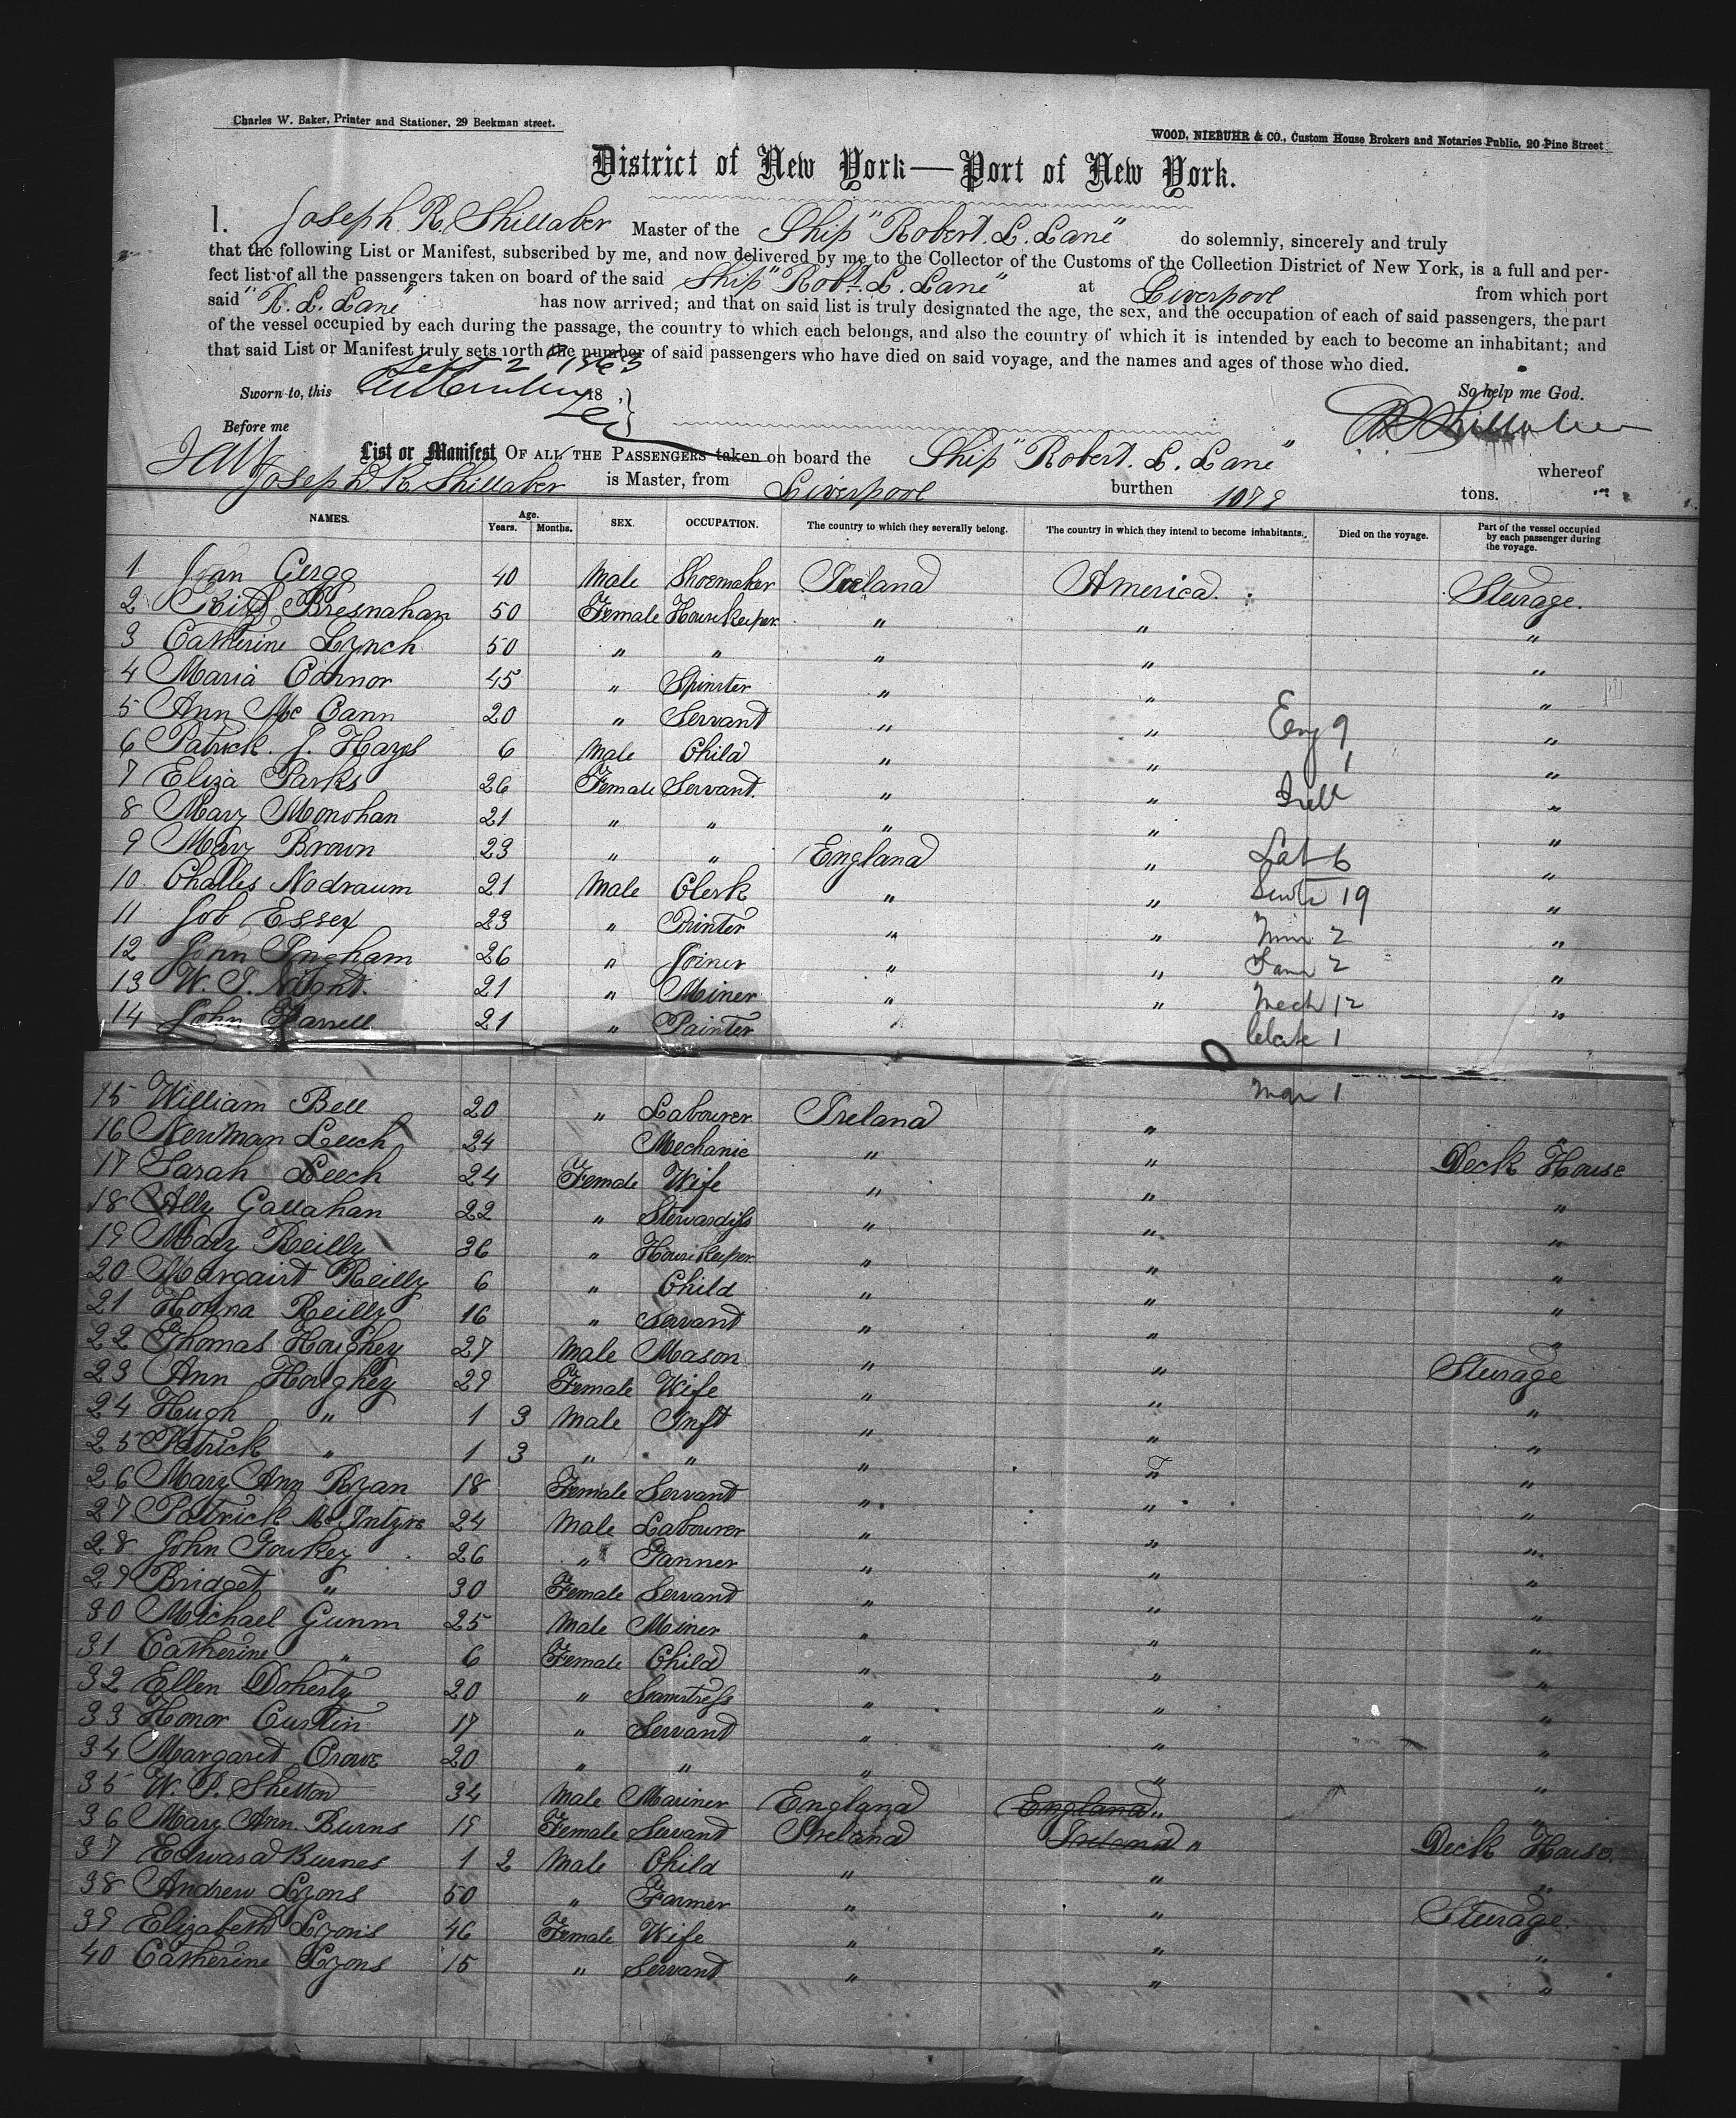 Charles W. Baker, Printer and Stationer, 29 Beekman street.
WOOD, NIEBUHR & CO., Custom House Brokers and Notaries Public, 20 Pine Street
District of New York—Port of New York.
I. Joseph R. Shillaber Master of the Ship "Robert. L. Lane" do solemnly, sincerely and truly
that the following List or Manifest, subscribed by me, and now delivered by me to the Collector of the Customs of the Collection District of New York, is a full and per-
fect list of all the passengers taken on board of the said Ship "Robt. L. Lane" at Liverpool from which port
said "R. L. Lane" has now arrived; and that on said list is truly designated the age, the sex, and the occupation of each of said passengers, the part
of the vessel occupied by each during the passage, the country to which each belongs, and also the country of which it is intended by each to become an inhabitant; and
that said List or Manifest truly sets forth the number of said passengers who have died on said voyage, and the names and ages of those who died.
Sept 2 1863
Sworn to, this 18 So help me God.
Before me
List or Manifest OF ALL THE PASSENGERS taken on board the Ship "Robert. L. Lane" whereof
Joseph. R. Shillaber is Master, from Liverpool burthen 1078 tons.
NAMES. Age. Years. Months. SEX. OCCUPATION. The country to which they severally belong. The country in which they intend to become inhabitants. Died on the voyage. Part of the vessel occupied by each passenger during the voyage.
1 40 Male Shoemaker Ireland America. Sturage.
2 Bresnahan 50 Female Housekeeper " " "
3 Catherine Lynch 50 " " " " "
4 Maria Connor 45 " Spinster " " "
5 Ann Mc Cann 20 " Servant " " Eng 9 "
6 Patrick. J. Hayes 6 Male Child " " 1 "
7 Eliza Parks 26 Female Servant. " " "
8 Mary Monohan 21 " " " " "
9 Mary Brown 23 " " England " Lab 6 "
10 Challes Nodraum 21 Male Clerk " " 19 "
11 Job Essex 23 " Printer " " Min 2 "
12 John Ingham 26 " Joiner " " 2 "
13 W. 21 " Miner " " Mech 12 "
14 John Farrell 21 " Painter " 1
15 William Bell 20 " Labourer Ireland " Mar 1 "
16 Newman Leech 24 Mechanic " " Deck House
17 Sarah Leech 24 Female Wife " " "
18 Ally Gallahan 22 " Stewardess " " "
19 Mary Reilly 36 " Housekeeper " " "
20 Margaret Reilly 6 " Child " " "
21 Honna Reilly 16 " Servant " " "
22 Thomas Houghey 27 Male Mason " " Sturage
23 Ann Houghey 29 Female Wife " " "
24 Hugh " 1 3 Male Inft " " "
25 Patrick " 1 3 " " " " "
26 Mary Ann Ryan 18 Female Servant " " "
27 Patrick McIntyre 24 Male Labourer " " "
28 John 26 " Tanner " " "
29 Bridget " 30 Female Servant " " "
30 Michael Gunm 25 Male Miner " " "
31 Catherine " 6 Female Child " " "
32 Ellen Doherty 20 " Seamstress " " "
33 Honor Curtin 17 " Servant " " "
34 Margaret Crowe 20 " " " " "
35 W. P. Shelton 34 Male Mariner England England " "
36 Mary Ann Burns 19 Female Servant Ireland Ireland " Deck House.
37 Edward Burnes 1 2 Male Child " " "
38 Andrew Lyons 50 " Farmer " " Sturage.
39 Elizabeth Lyons 46 Female Wife " " "
40 Catherine Lyons 15 " Servant " " "